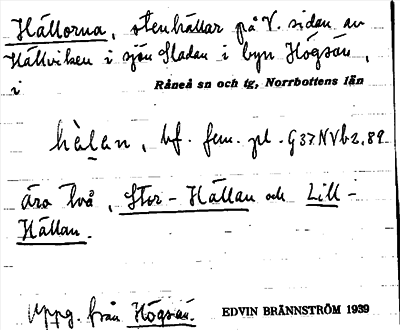 Hällorna, stenhällar på V. sidan av
Hällviken i sjön Sladan i byn Högsön,
i Råneå sn och tg, Norrbottens län
hälan, bf. fem. pl. G37NVb2,89
äro två, Stor-Hällan och Lill-
Hällan.
Uppg. från Högsön. EDVIN BRÄNNSTRÖM 1939